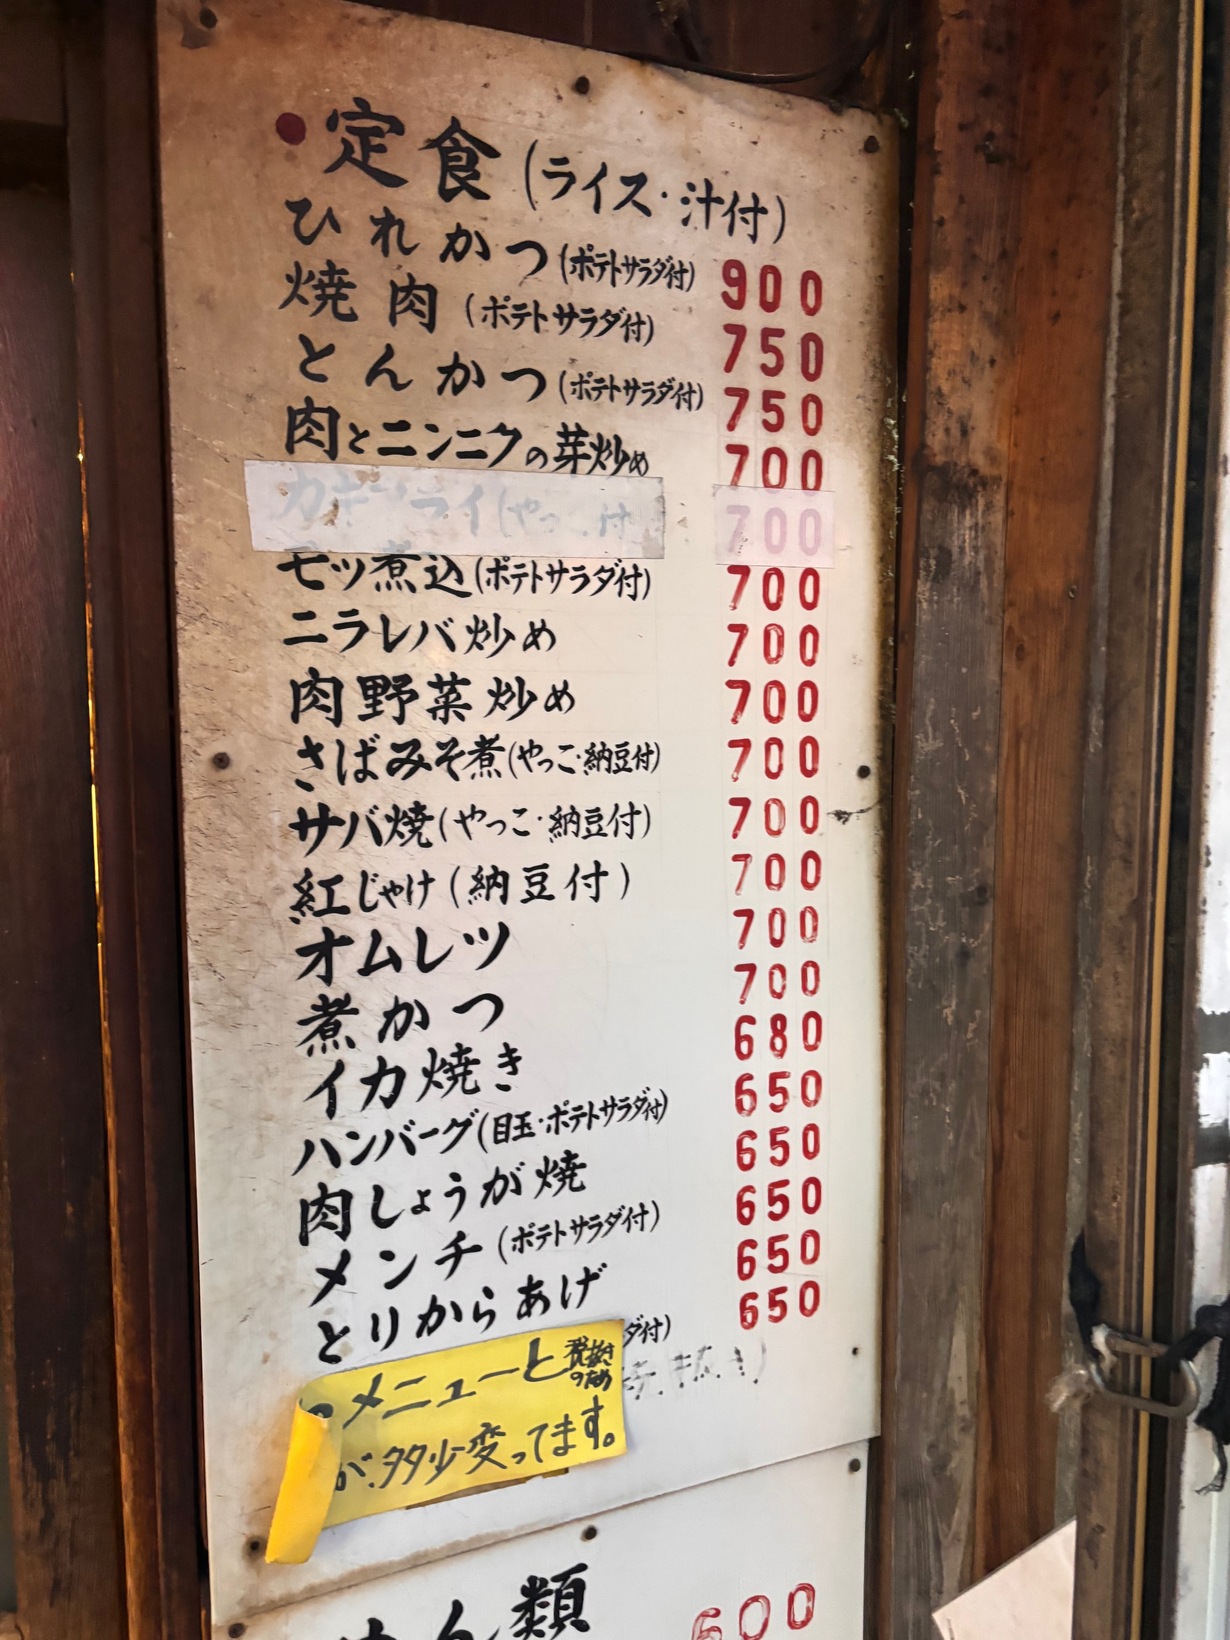 ●定食(ライス・汁付)
ひれかつ(ポテトサラダ付) 900
焼肉(ポテトサラダ付) 750
とんかつ(ポテトサラダ付) 750
肉とニンニクの芽炒め 700
700
モツ煮込(ポテトサラダ付) 700
ニラレバ炒め 700
肉野菜炒め 700
さばみそ煮(やっこ・納豆付) 700
サバ焼(やっこ・納豆付) 700
紅じゃけ(納豆付) 700
オムレツ 700
煮かつ 700
イカ焼き 680
ハンバーグ(目玉・ポテトサラダ付) 650
肉しょうが焼 650
メンチ(ポテトサラダ付) 650
とりからあげ 650
ダ付) 650
メニューと税抜きのため
が、多少変ってます。
ん類 600